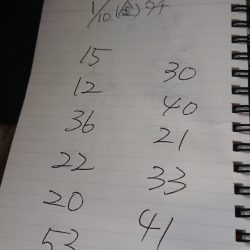 1/10(金)
15 30
12 40
36 21
22 33
20 41
53